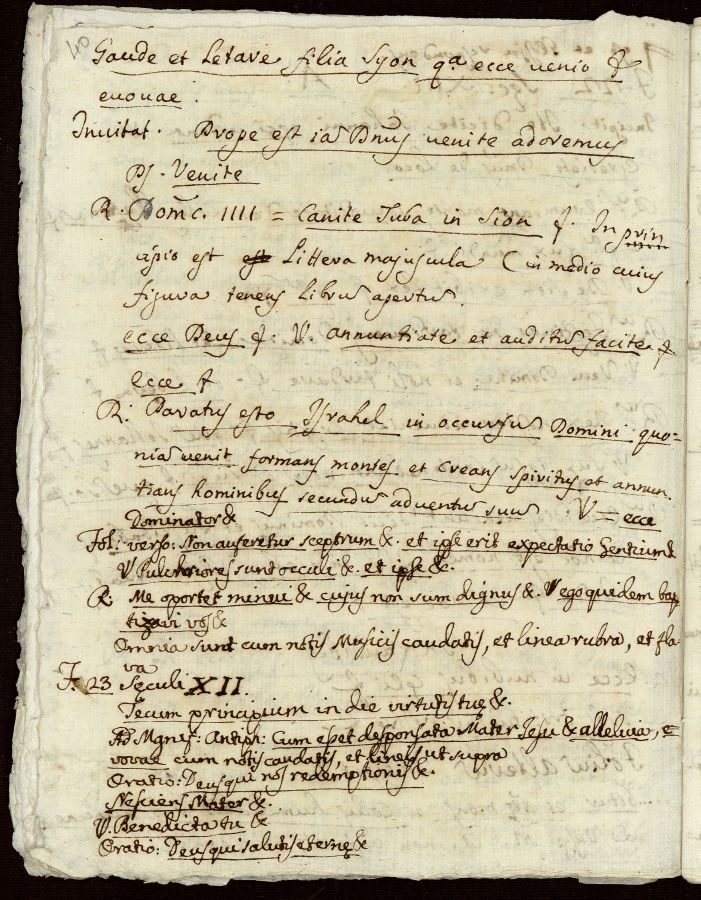 Gaude et Letare filia Syon qa ecce uenio &
euouae.
Inuitat. Prope est iā Dn̄s uenite adoremus
Ps. Venite
R. Domc. IIII = Canite Tuba in Sion &. In prin
cipio est est Littera majuscula C in medio cuius
figura tenens Librū apertū.
ecce Deus &. V. annuntiate et auditū facite &
Ecce &
R: Paratus esto Israhel in occursū Domini quo=
niā uenit formans montes et creans spiritus et annun.
tians hominibus secundū aduentū suū. V = ecce
Dominator &
Fol: verso: Non auferetur sceptrum &. et ipse erit expectatio Gentium &
V Pulchriores sunt occuli &. et ipse &.
R: Me oportet minui & cujus non sum dignus &. V ego quidem bap
tizavi vos &
Omnia sunt cum notis Musicis caudatis, et linea rubra, et fla-
va
F. 23 Sęculi XII.
Tecum principium in die virtutis tuę &.
Ad Mgnif: Antiph: Cum esset desponsata Mater Jesu & alleluia, e
vovae cum notis caudatis, et lineis ut supra
Oratio: Deus qui nos redemptionis &.
Nesciens Mater &.
V. Benedicta tu &
Oratio: Deus qui salutis eternę &